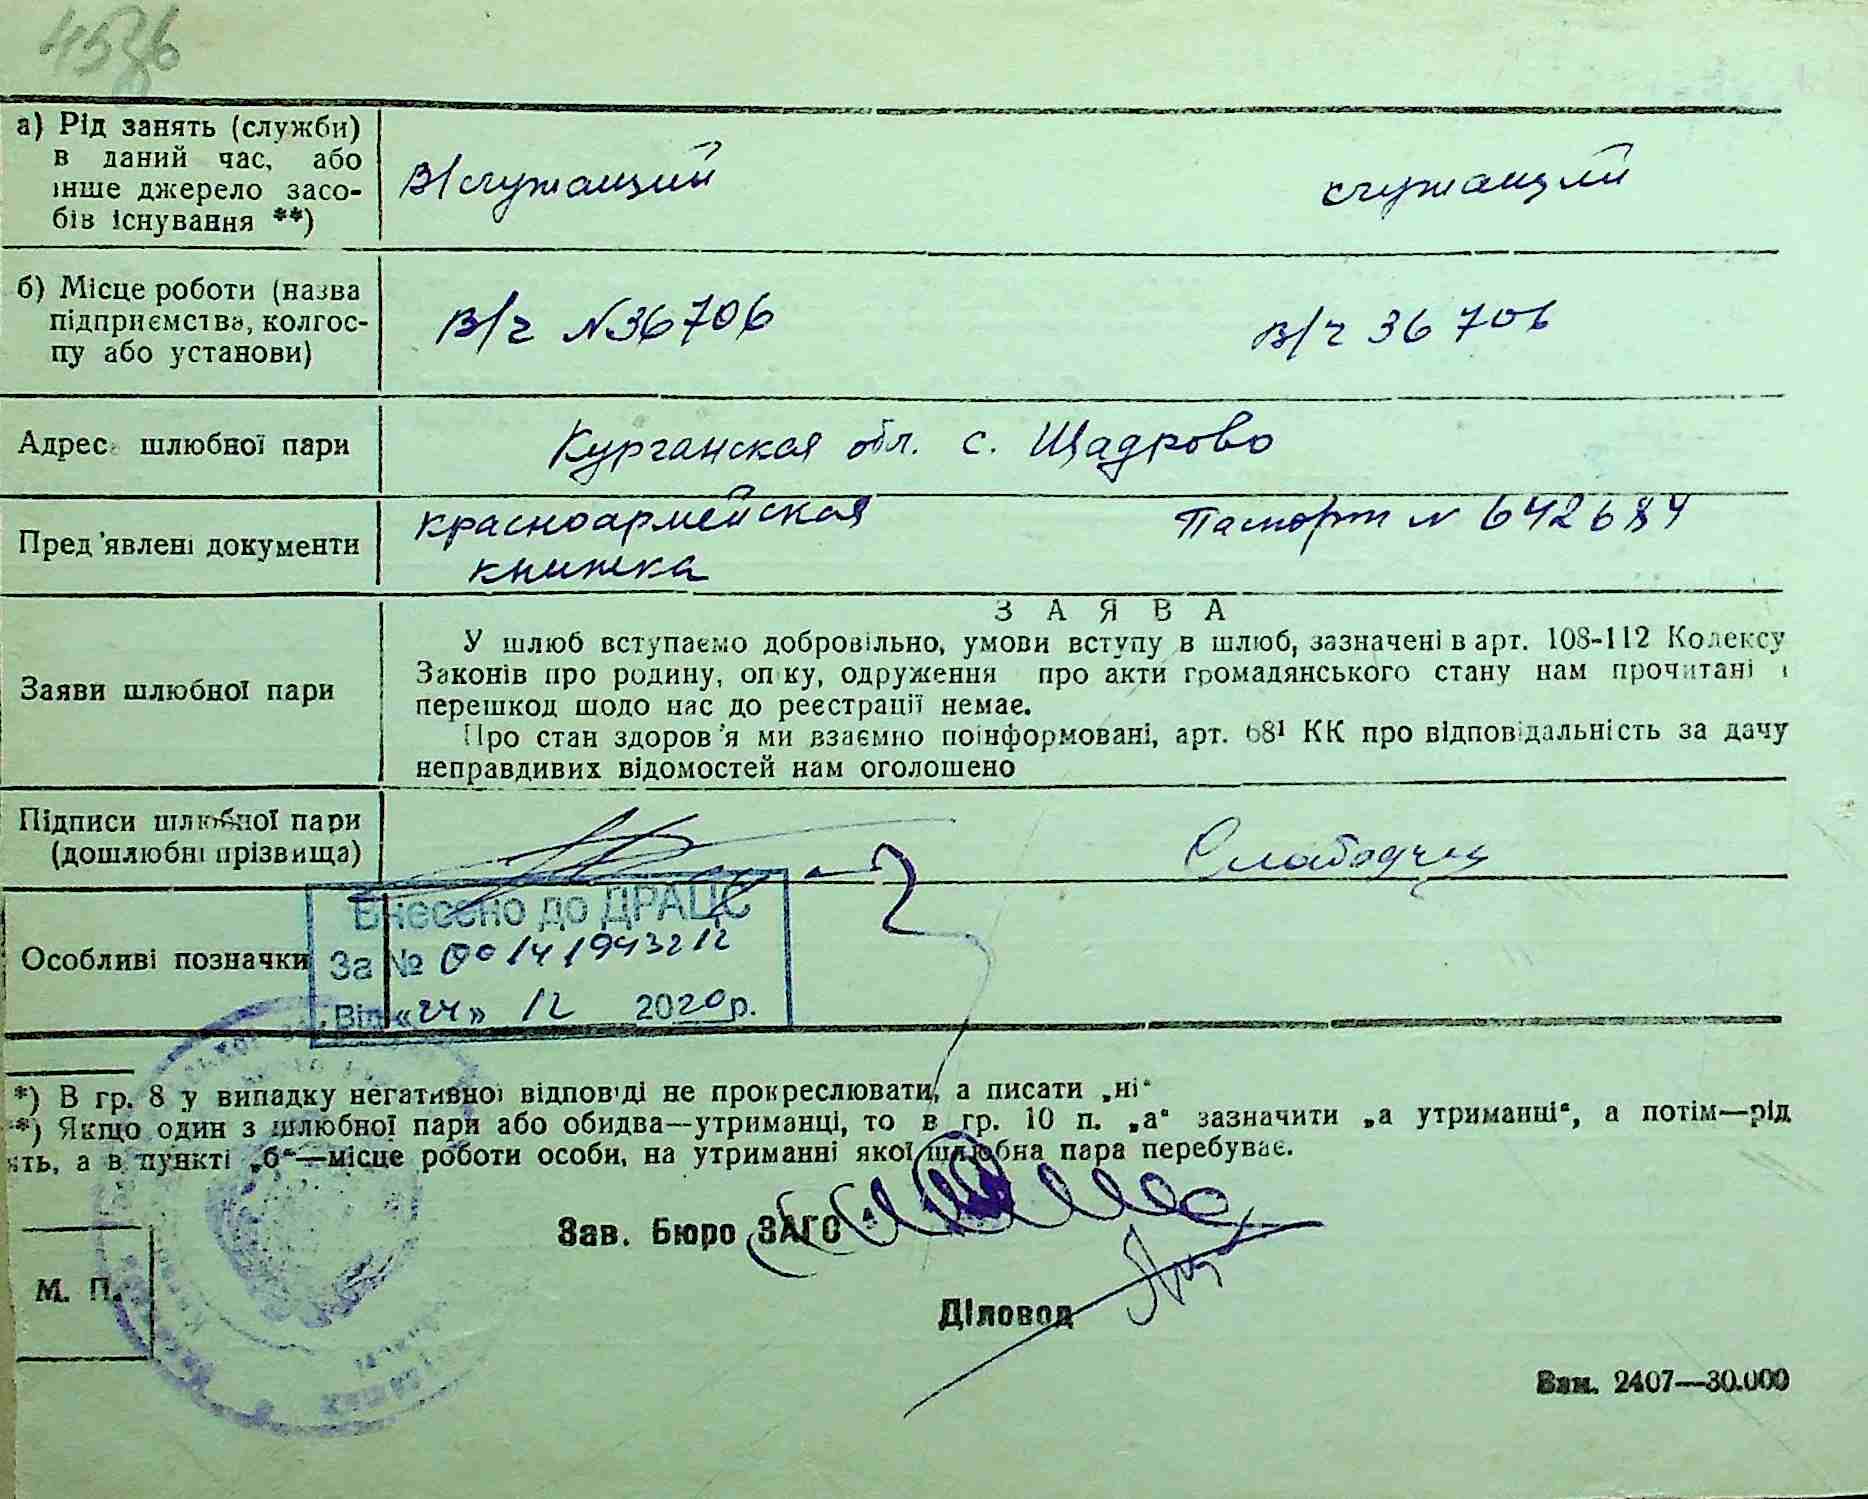 4536
а) Рід занять (служби)
в даний час, або
інше джерело засо-
бів існування **)
В/служащий
служащий
б) Місце роботи (назва
підприємства, колгос-
пу або установи)
В/ч №36706
в/ч 36706
Адрес шлюбної пари
Курганская обл. с. Щадрово
Пред'явлені документи
красноармейская
книжка
Паспорт № 642684
ЗАЯВА
Заяви шлюбної пари
У шлюб вступаємо добровільно, умови вступу в шлюб, зазначені в арт. 108-112 Кодексу
Законів про родину, опіку, одруження про акти громадянського стану нам прочитані і
перешкод щодо нас до реєстрації немає.
Про стан здоров'я ми взаємно поінформовані, арт. 68¹ КК про відповідальність за дачу
неправдивих відомостей нам оголошено
Підписи шлюбної пари
(дошлюбні прізвища)
Особливі позначки
Внесено до ДРАЦС
За № 00141943212
Від «24» 12 2020р.
*) В гр. 8 у випадку негативної відповіді не прокреслювати, а писати „ні“
*) Якщо один з шлюбної пари або обидва—утриманці, то в гр. 10 п. „а“ зазначити „а утриманні“, а потім—рід
ять, а в пункті „б“—місце роботи особи, на утриманні якої шлюбна пара перебуває.
Зав. Бюро ЗАГС
М. П.
Діловод
Зам. 2407—30.000